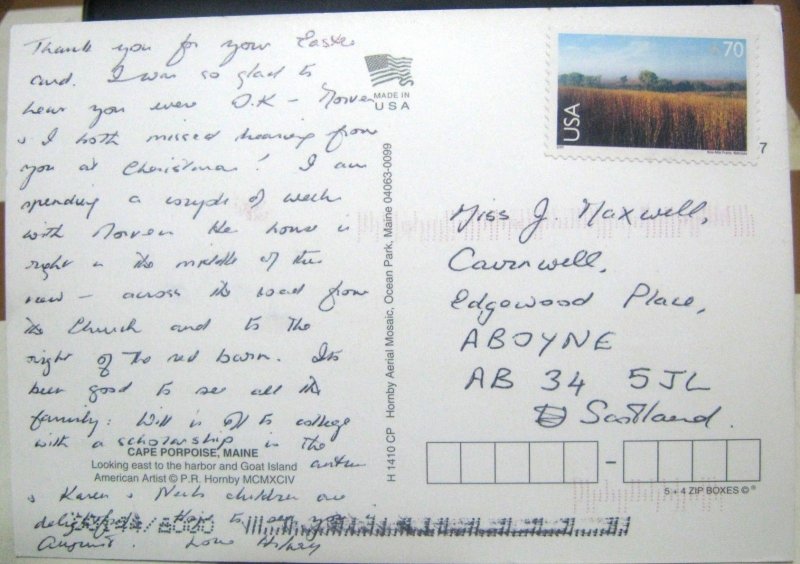 Thank you for your Easter
card. I was so glad to
hear you were O.K – Morven
& I both missed hearing from
you at Christmas! I am
spending a couple of weeks
with Morven. Her house is
right in the middle of this
view – across the road from
the Church and to the
right of the red barn. Its
been good to see all the
family: Will is off to college
with a scholarship in the
autumn
& Karen & Neil's children are
delightful. Hope to see you
August. Love Hilary
CAPE PORPOISE, MAINE
Looking east to the harbor and Goat Island
American Artist © P.R. Hornby MCMXCIV
MADE IN
USA
H 1410 CP Hornby Aerial Mosaic, Ocean Park, Maine 04063-0099
70
USA
7
Miss J. Maxwell,
Cairnwell,
Edgewood Place,
ABOYNE
AB 34 5JL
Scotland.
5 + 4 ZIP BOXES ©